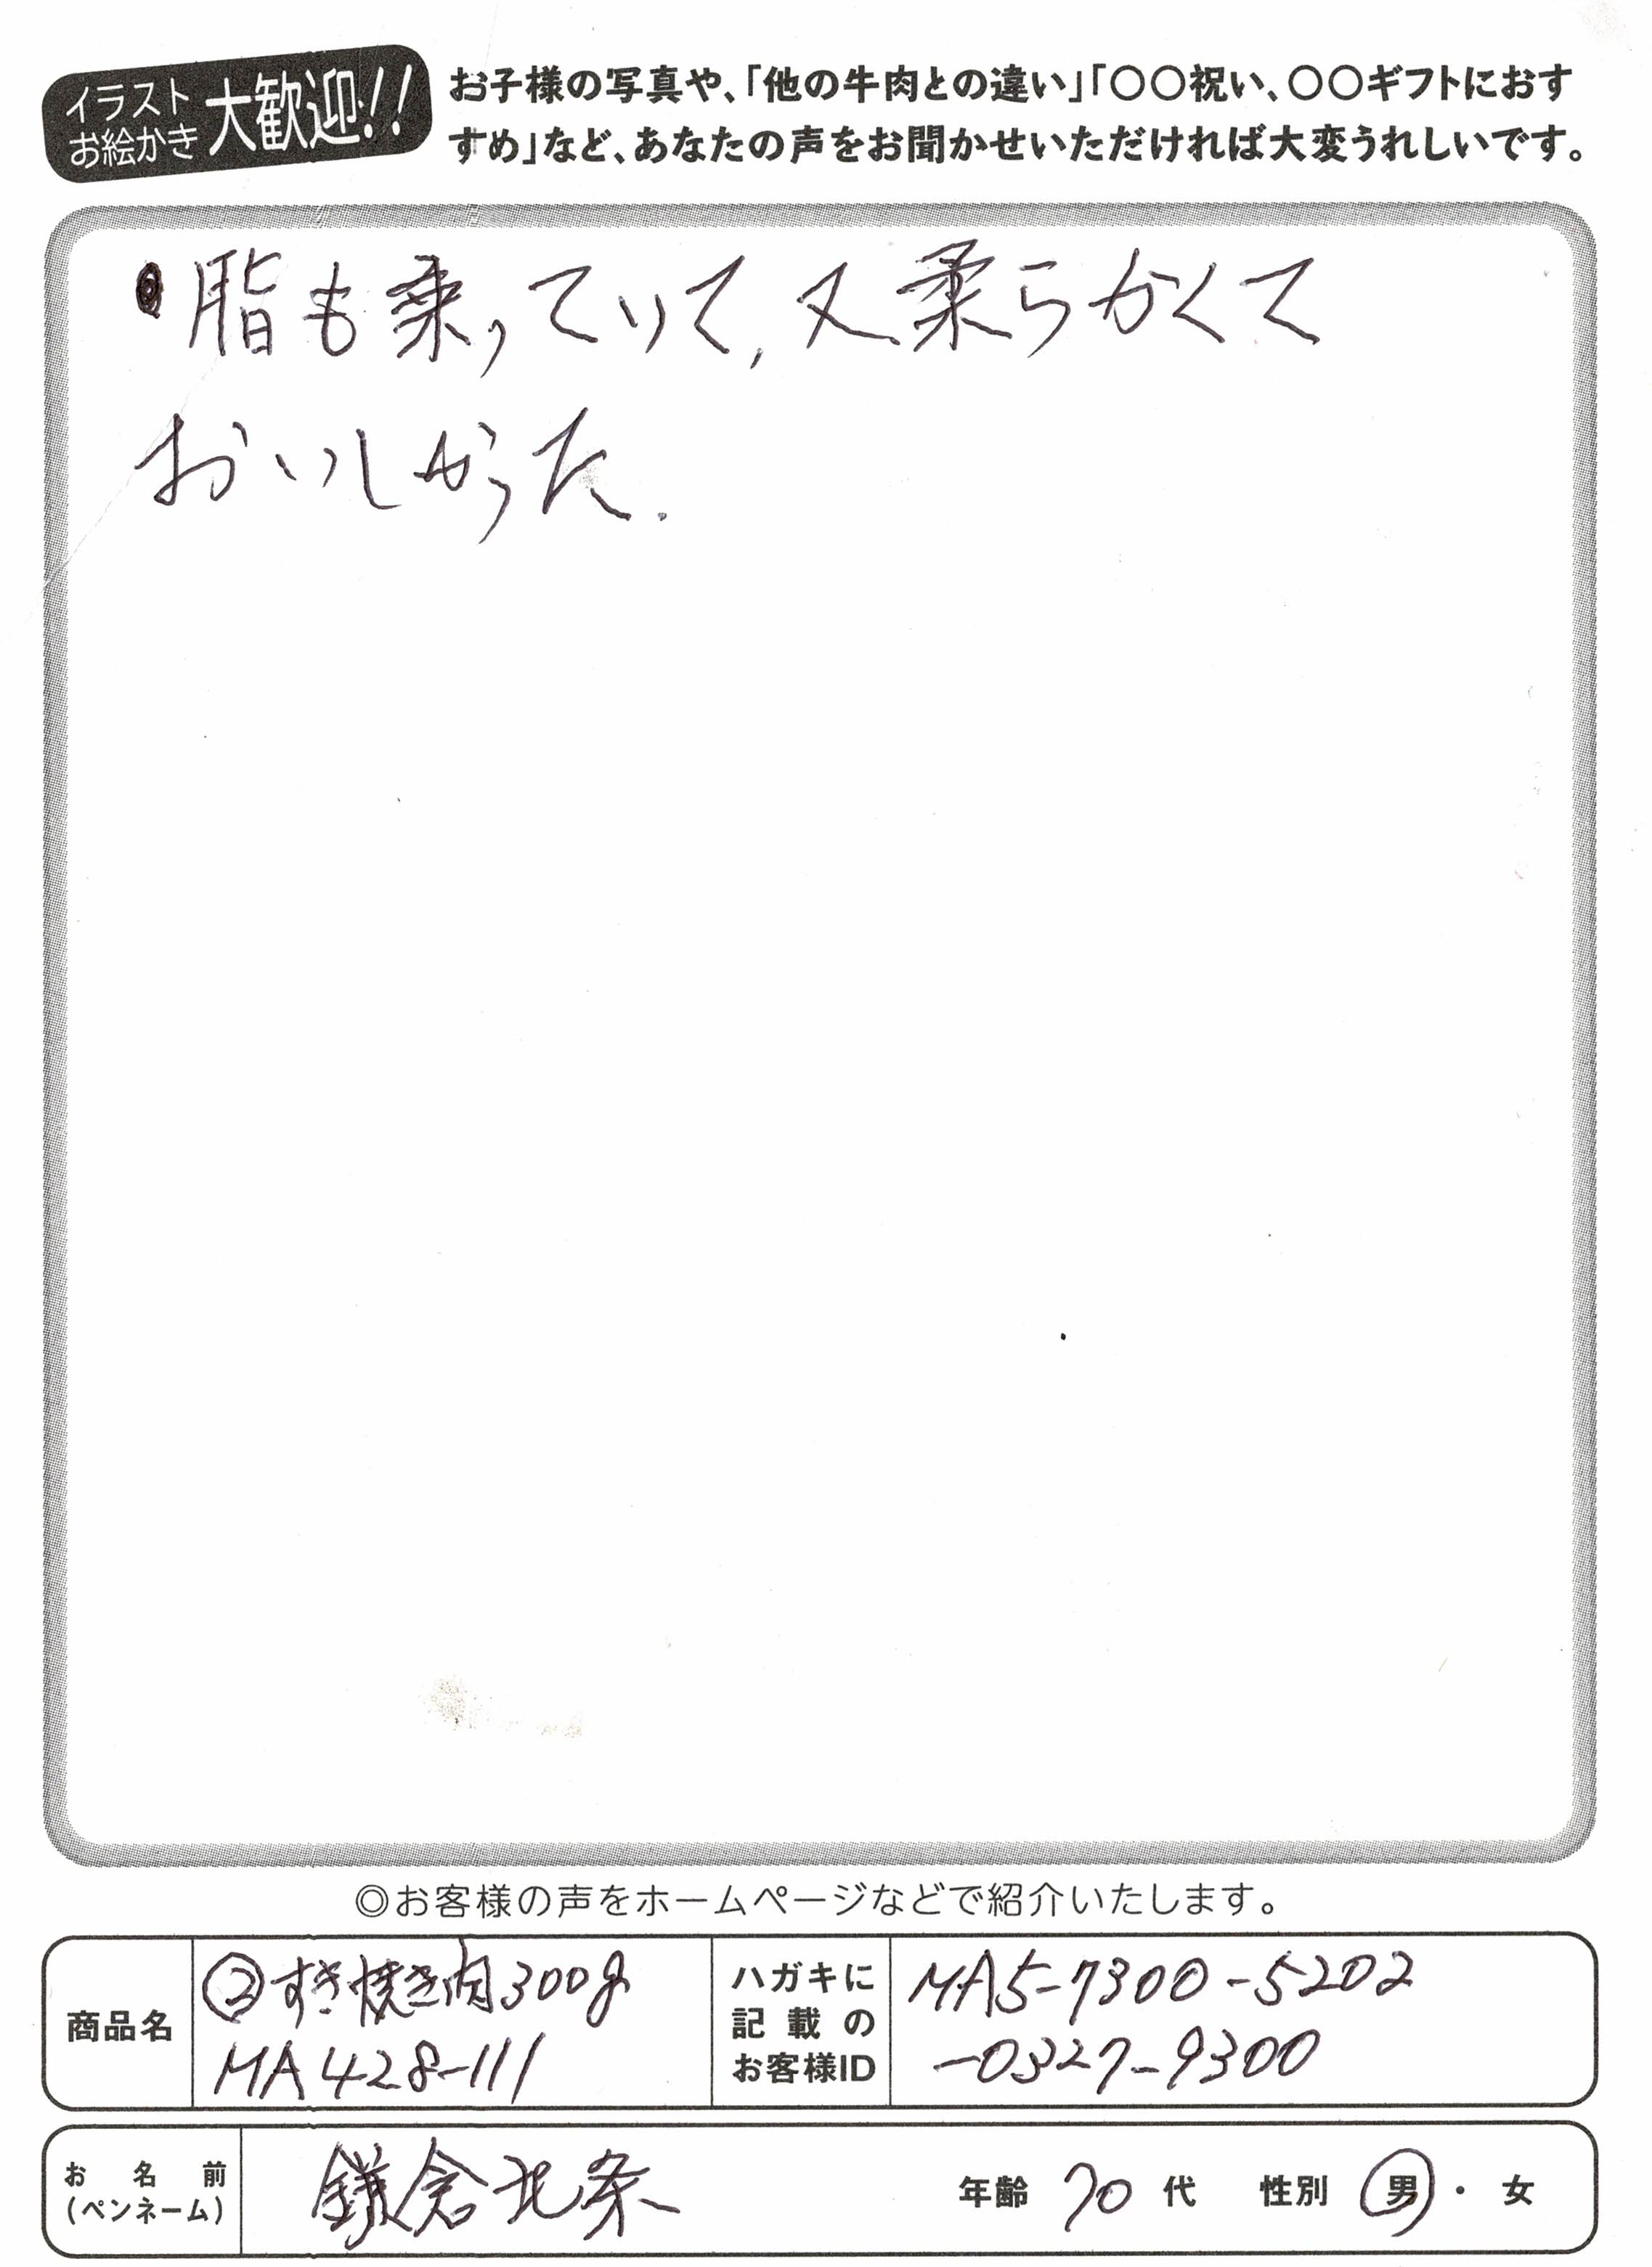 イラスト
お絵かき
大歓迎!!
お子様の写真や、「他の牛肉との違い」「〇〇祝い、〇〇ギフトにおす
すめ」など、あなたの声をお聞かせいただければ大変うれしいです。
●脂も乗っていて,又柔らかくて
おいしかった.
◎お客様の声をホームページなどで紹介いたします。
商品名
②すき焼き肉300g
MA428-111
ハガキに
記載の
お客様ID
MA5-7300-5202
-0327-9300
お名前
(ペンネーム)
鎌倉北条
年齢 70 代 性別 男・女